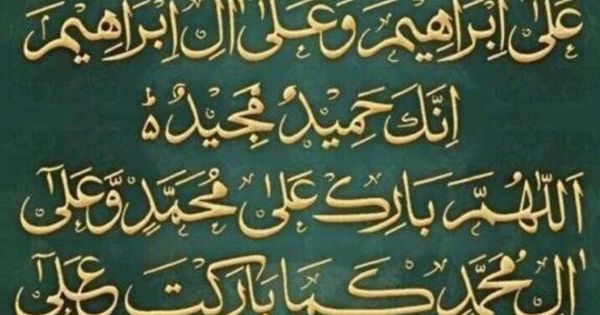 عَلٰى اِبْرَاهِيْمَ وَعَلٰى اٰلِ اِبْرَاهِيْمَ
اِنَّكَ حَمِيْدٌ مَّجِيْدٌ ۵
اَللّٰهُمَّ بَارِكْ عَلٰى مُحَمَّدٍ وَّعَلٰٓى
اٰلِ مُحَمَّدٍ كَمَا بَارَكْتَ عَلٰٓى